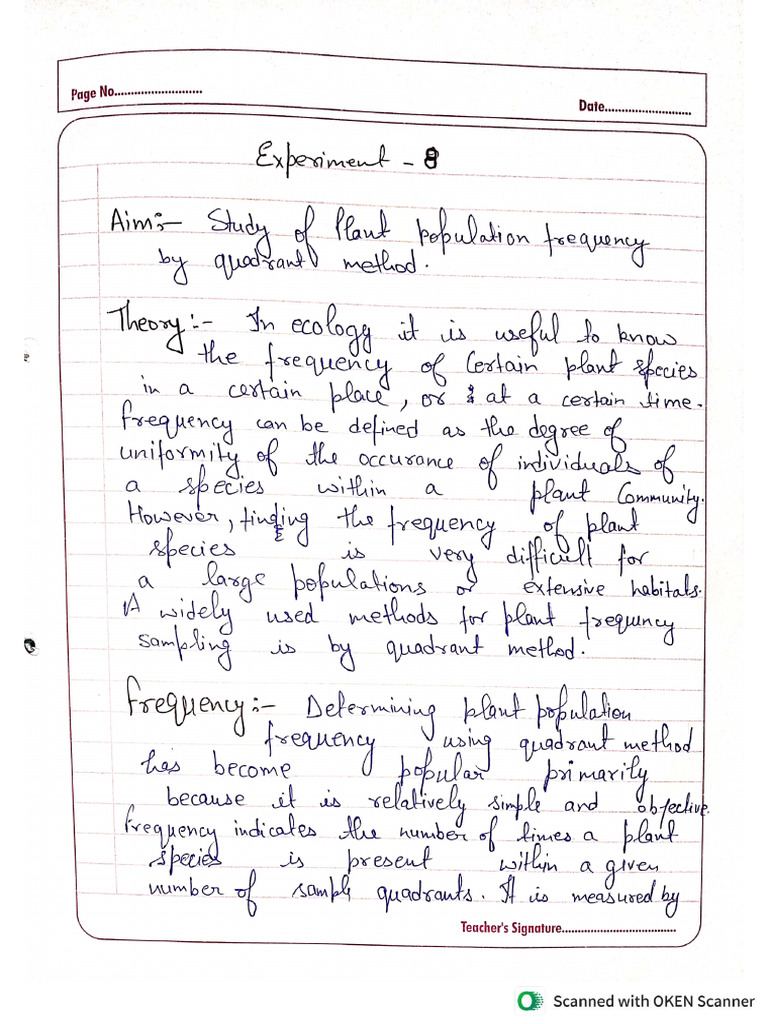 Page No..........................
Date..........................
Experiment - 8
Aim:- Study of Plant Population frequency
by quadrant method.
Theory:- In ecology it is useful to know
the frequency of Certain plant species
in a certain place, or at a certain time.
Frequency can be defined as the degree of
uniformity of the occurance of individuals of
a species within a plant Community.
However, finding the frequency of plant
species is very difficult for
a large populations or extensive habitats.
A widely used methods for plant frequncy
sampling is by quadrant method.
Frequency:- Determining plant population
frequency using quadrant method
has become popular primarily
because it is relatively simple and objective.
Frequency indicates the number of times a plant
species is present within a given
number of sample quadrants. It is measured by
Teacher's Signature..................................
Scanned with OKEN Scanner